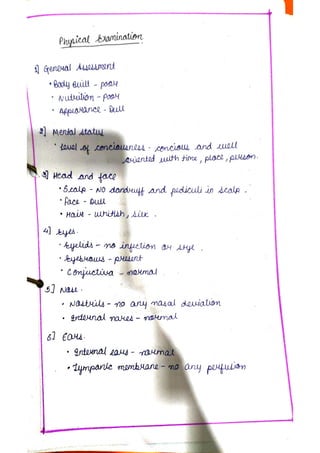 Physical Examination
1] General Assessment
• Body Built - poor
• Nutrition - Poor
• Appearance - Dull
2] Mental status
• Level of conciousness - concious and well
oriented with time, place, person.
3] Head and face
• Scalp - NO dandruff and pediculi in scalp.
• Face - Dull
• Hair - whitish, silk.
4] Eyes.
• Eyelids - no infection or stye.
• Eyebrows - present
• Conjuctiva - normal
5] Nose.
• Nostrils - no any nasal deviation
• External nares - normal
6] Ears.
• External ears - normal
• Tympanic membrane - no any perfusion